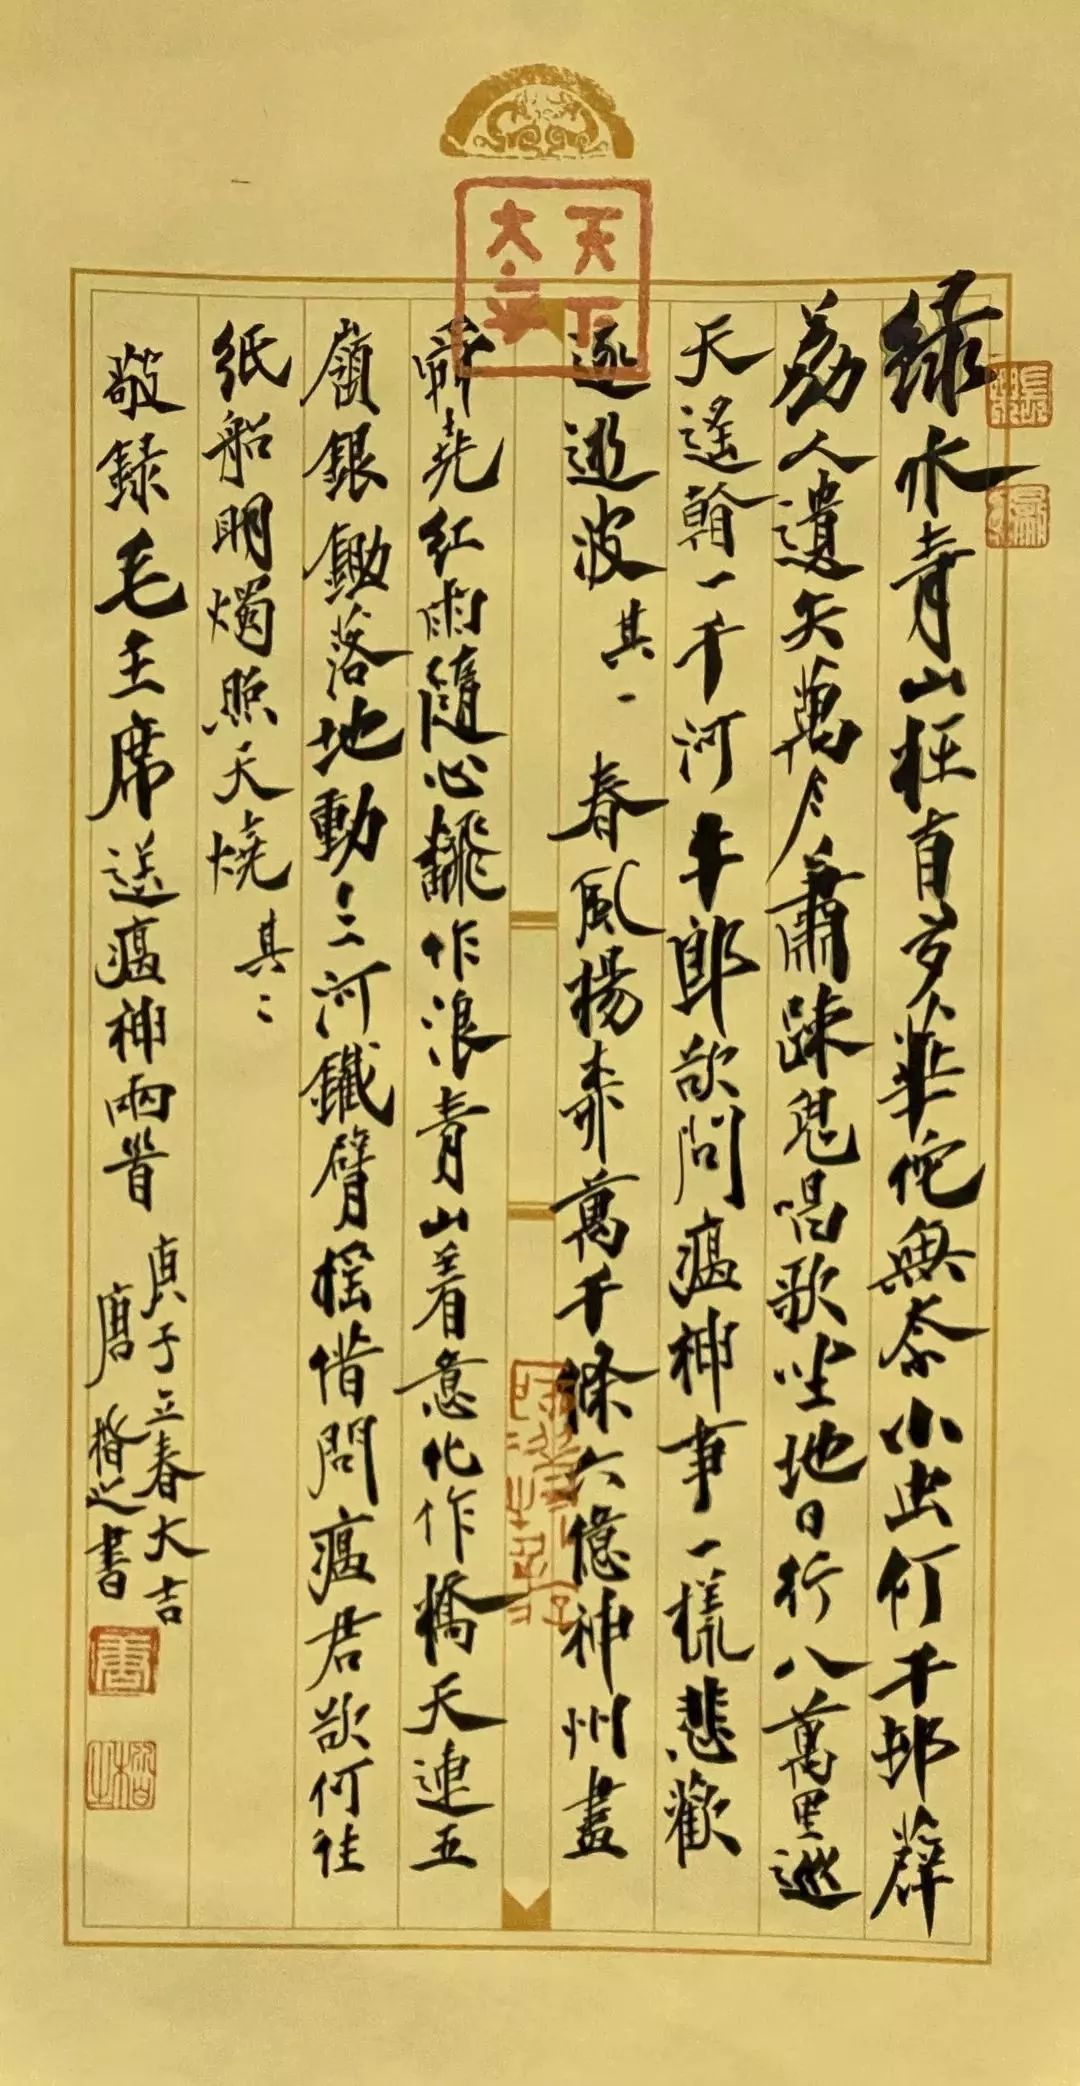 天下
大平
绿水青山枉自多華佗無奈小虫何千邨薜
荔人遺矢萬户蕭疎鬼唱歌坐地日行八萬里巡
天遙看一千河牛郎欲問瘟神事一樣悲歡
逐逝波 其一 春風楊柳萬千條六億神州盡
舜堯紅雨隨心翻作浪青山着意化作橋天連五
嶺銀鋤落地動三河鐵臂摇借問瘟君欲何往
紙船明燭照天燒 其二
敬録毛主席送瘟神兩首 庚子立春大吉
唐楷之書
唐
楷之